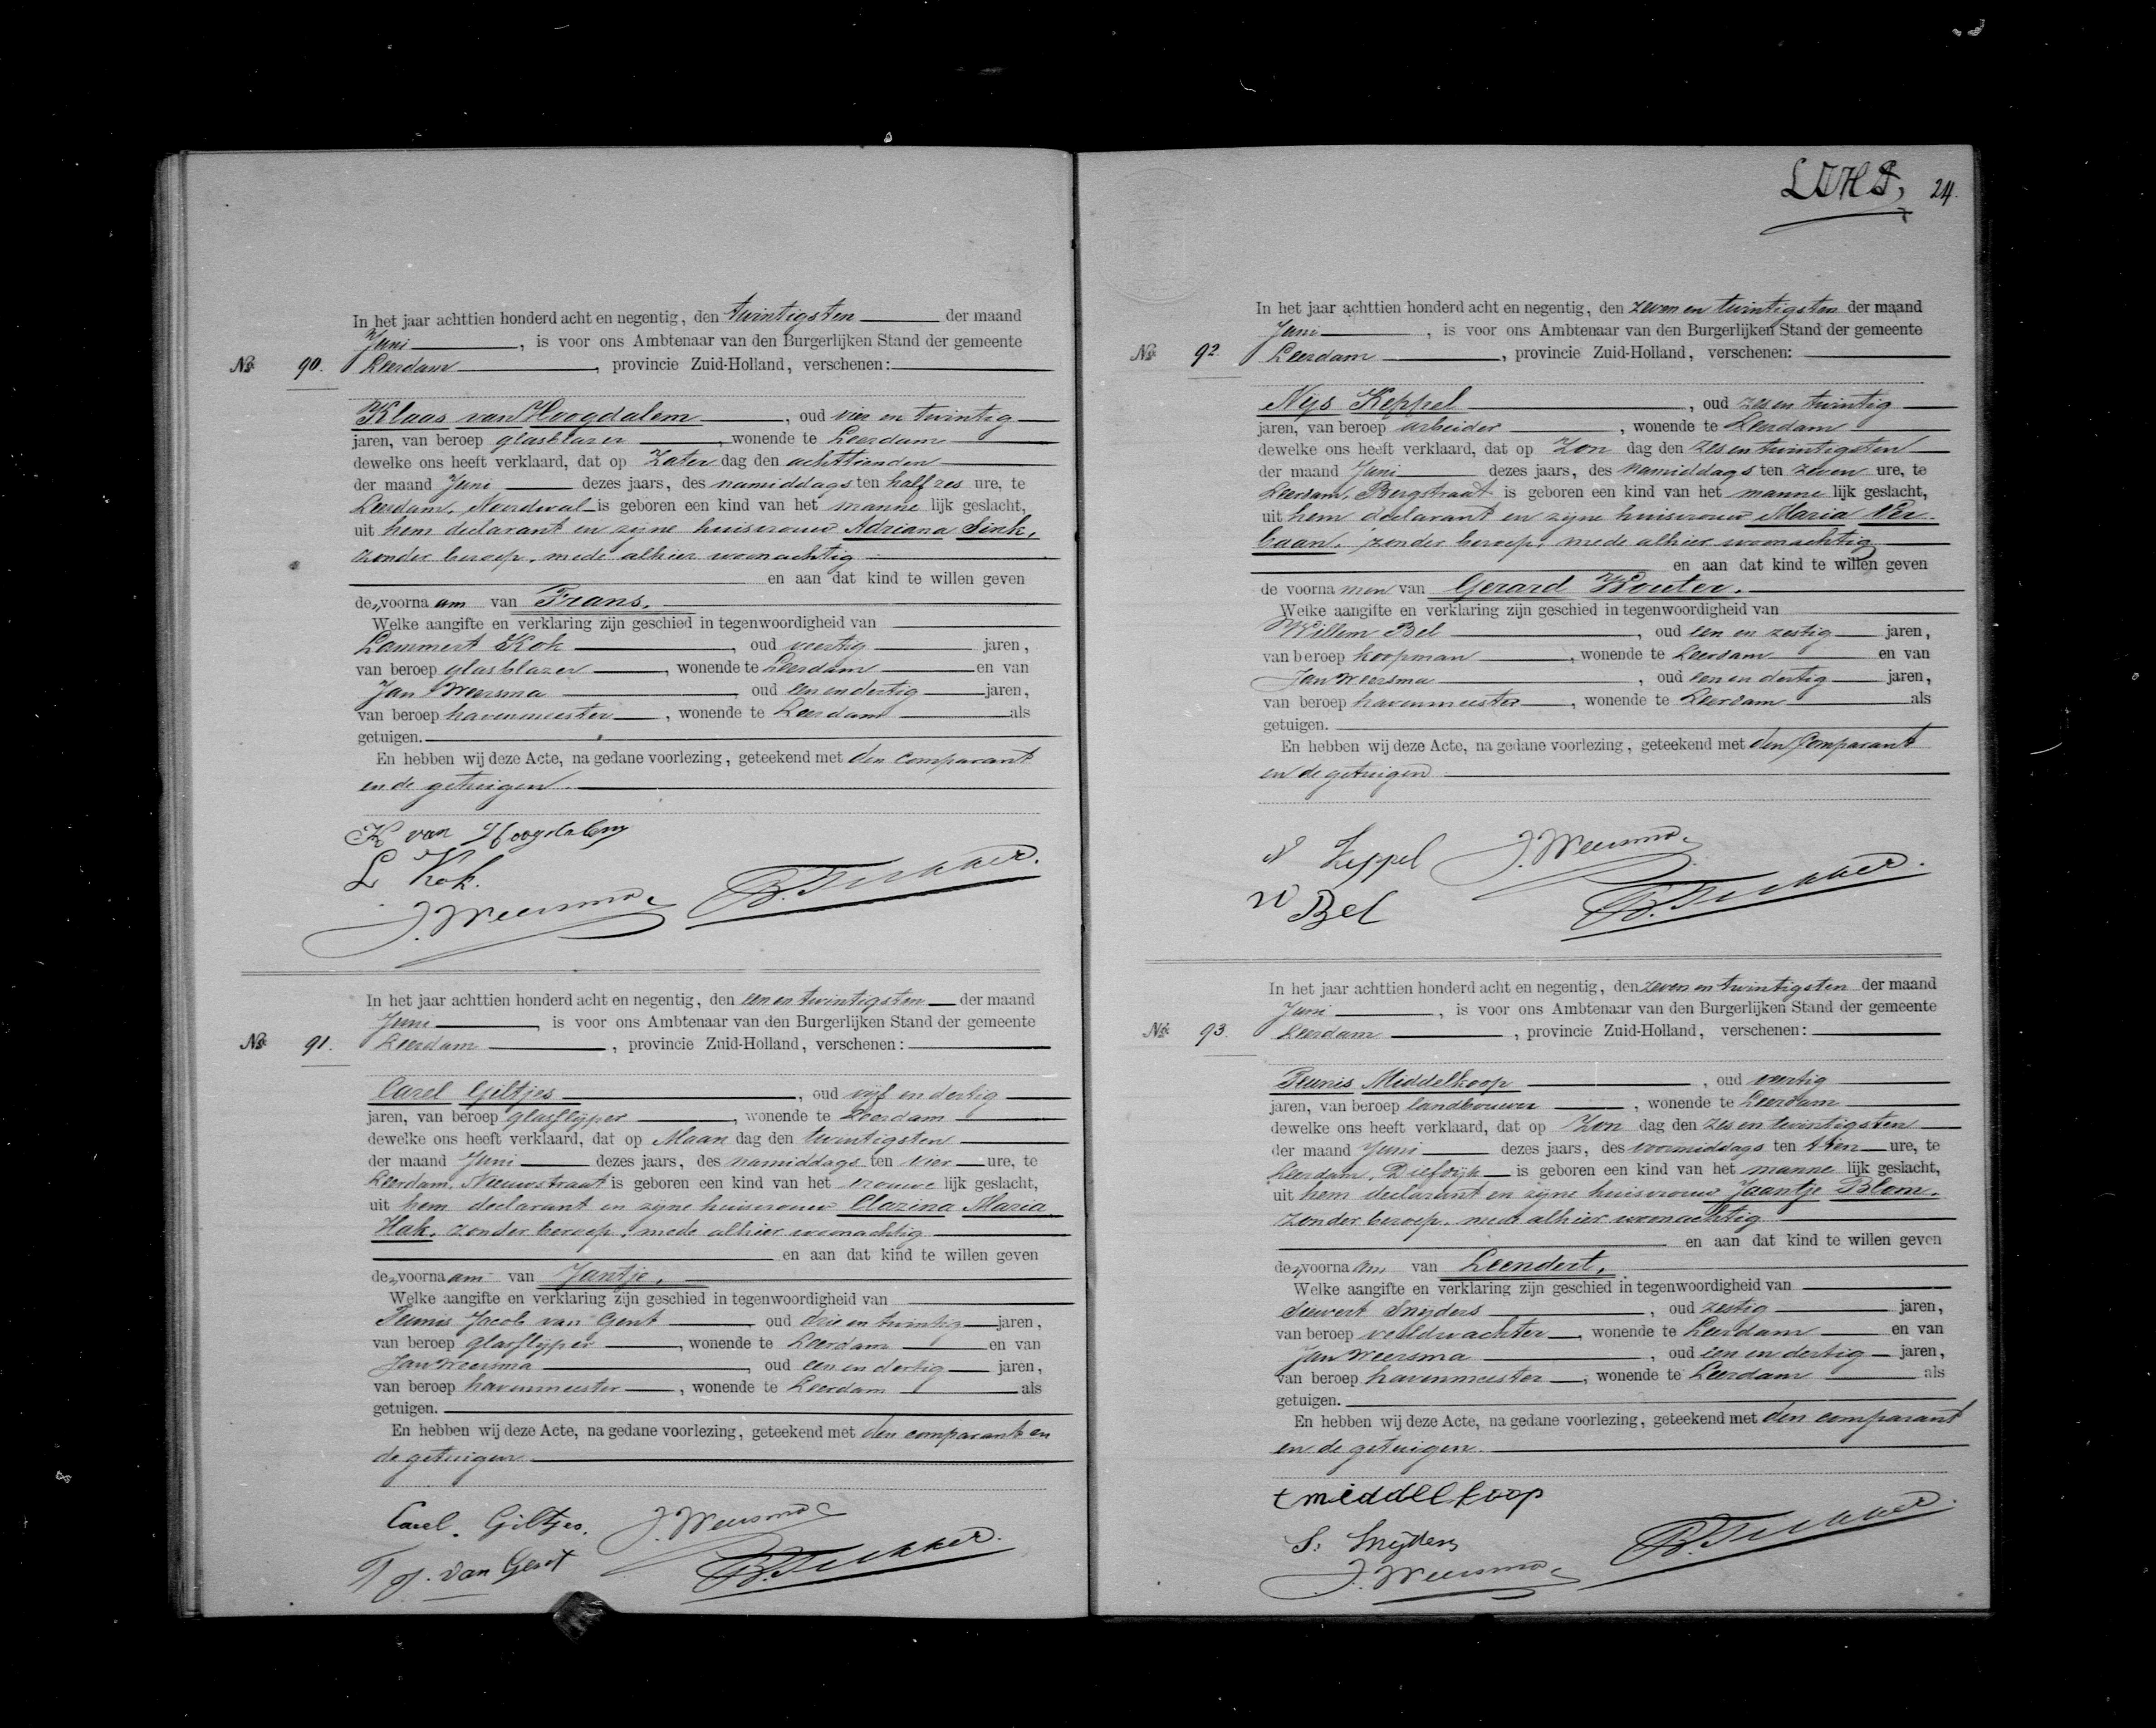 In het jaar achttien honderd acht en negentig, den twintigsten der maand
Juni, is voor ons Ambtenaar van den Burgerlijken Stand der gemeente
No. 90. Leerdam, provincie Zuid-Holland, verschenen:
Klaas van Hoogdalem, oud vier en twintig
jaren, van beroep glasblazer, wonende te Leerdam
dewelke ons heeft verklaard, dat op Zaterdag den achttienden
der maand Juni dezes jaars, des namiddags ten half zes ure, te
Leerdam, Noordwal is geboren een kind van het mannelijk geslacht,
uit hem declarant en zijne huisvrouw Adriana Sink,
zonder beroep, mede alhier woonachtig
en aan dat kind te willen geven
den voornaam van Frans.
Welke aangifte en verklaring zijn geschied in tegenwoordigheid van
Lammert Kok, oud veertig jaren,
van beroep glasblazer, wonende te Leerdam en van
Jan Weersma, oud een en dertig jaren,
van beroep havenmeester, wonende te Leerdam als
getuigen.
En hebben wij deze Acte, na gedane voorlezing, geteekend met den comparant
en de getuigen.
K van Hoogdalem
L Kok.
J. Weersma
In het jaar achttien honderd acht en negentig, den een en twintigsten der maand
Juni, is voor ons Ambtenaar van den Burgerlijken Stand der gemeente
No. 91. Leerdam, provincie Zuid-Holland, verschenen:
Carel Giltjes, oud vijf en dertig
jaren, van beroep glasslijper, wonende te Leerdam
dewelke ons heeft verklaard, dat op Maandag den twintigsten
der maand Juni dezes jaars, des namiddags ten vier ure, te
Leerdam, Nieuwstraat is geboren een kind van het vrouwelijk geslacht,
uit hem declarant en zijne huisvrouw Clazina Maria
Hak, zonder beroep, mede alhier woonachtig
en aan dat kind te willen geven
den voornaam van Jantje.
Welke aangifte en verklaring zijn geschied in tegenwoordigheid van
Teunis Jacob van Gent oud drie en twintig jaren,
van beroep glasslijper, wonende te Leerdam en van
Jan Weersma, oud een en dertig jaren,
van beroep havenmeester, wonende te Leerdam als
getuigen.
En hebben wij deze Acte, na gedane voorlezing, geteekend met den comparant en
de getuigen.
Carel. Giltjes. J. Weersma
T J. van Gent
24.
In het jaar achttien honderd acht en negentig, den zeven en twintigsten der maand
Juni, is voor ons Ambtenaar van den Burgerlijken Stand der gemeente
No. 92. Leerdam, provincie Zuid-Holland, verschenen:
Nijs Keppel, oud zes en twintig
jaren, van beroep arbeider, wonende te Leerdam
dewelke ons heeft verklaard, dat op Zondag den zes en twintigsten
der maand Juni dezes jaars, des namiddags ten zeven ure, te
Leerdam, Bergstraat is geboren een kind van het mannelijk geslacht,
uit hem declarant en zijne huisvrouw Maria Ver-
baan, zonder beroep, mede alhier woonachtig
en aan dat kind te willen geven
de voornamen van Gerard Wouter.
Welke aangifte en verklaring zijn geschied in tegenwoordigheid van
Willem Bel, oud een en zestig jaren,
van beroep koopman, wonende te Leerdam en van
Jan Weersma, oud een en dertig jaren,
van beroep havenmeester, wonende te Leerdam als
getuigen.
En hebben wij deze Acte, na gedane voorlezing, geteekend met den Comparant
en de getuigen.
N Keppel J. Weersma
W Bel
In het jaar achttien honderd acht en negentig, den zeven en twintigsten der maand
Juni, is voor ons Ambtenaar van den Burgerlijken Stand der gemeente
No. 93. Leerdam, provincie Zuid-Holland, verschenen:
Teunis Middelkoop, oud veertig
jaren, van beroep landbouwer, wonende te Leerdam
dewelke ons heeft verklaard, dat op Zondag den zes en twintigsten
der maand Juni dezes jaars, des voormiddags ten tien ure, te
Leerdam, Diefdijk is geboren een kind van het mannelijk geslacht,
uit hem declarant en zijne huisvrouw Jaantje Blom,
zonder beroep, mede alhier woonachtig
en aan dat kind te willen geven
den voornaam van Leendert.
Welke aangifte en verklaring zijn geschied in tegenwoordigheid van
Sieuwert Snijders, oud zestig jaren,
van beroep veldwachter, wonende te Leerdam en van
Jan Weersma, oud een en dertig jaren,
van beroep havenmeester, wonende te Leerdam als
getuigen.
En hebben wij deze Acte, na gedane voorlezing, geteekend met den comparant
en de getuigen.
t middelkoop
S. Snijders
J. Weersma